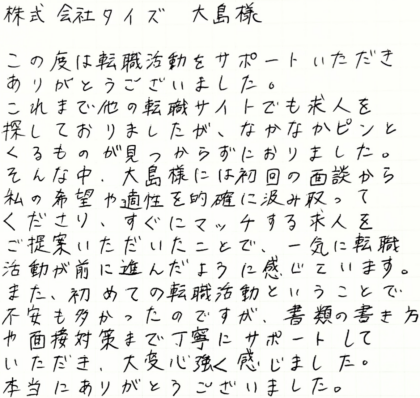 株式会社タイズ 大島様
この度は転職活動をサポートいただき
ありがとうございました。
これまで他の転職サイトでも求人を
探しておりましたが、なかなかピンと
くるものが見つからずにおりました。
そんな中、大島様には初回の面談から
私の希望や適性を的確に汲み取って
くださり、すぐにマッチする求人を
ご提案いただいたことで、一気に転職
活動が前に進んだように感じています。
また、初めての転職活動ということで
不安も多かったのですが、書類の書き方
や面接対策まで丁寧にサポートして
いただき、大変心強く感じました。
本当にありがとうございました。